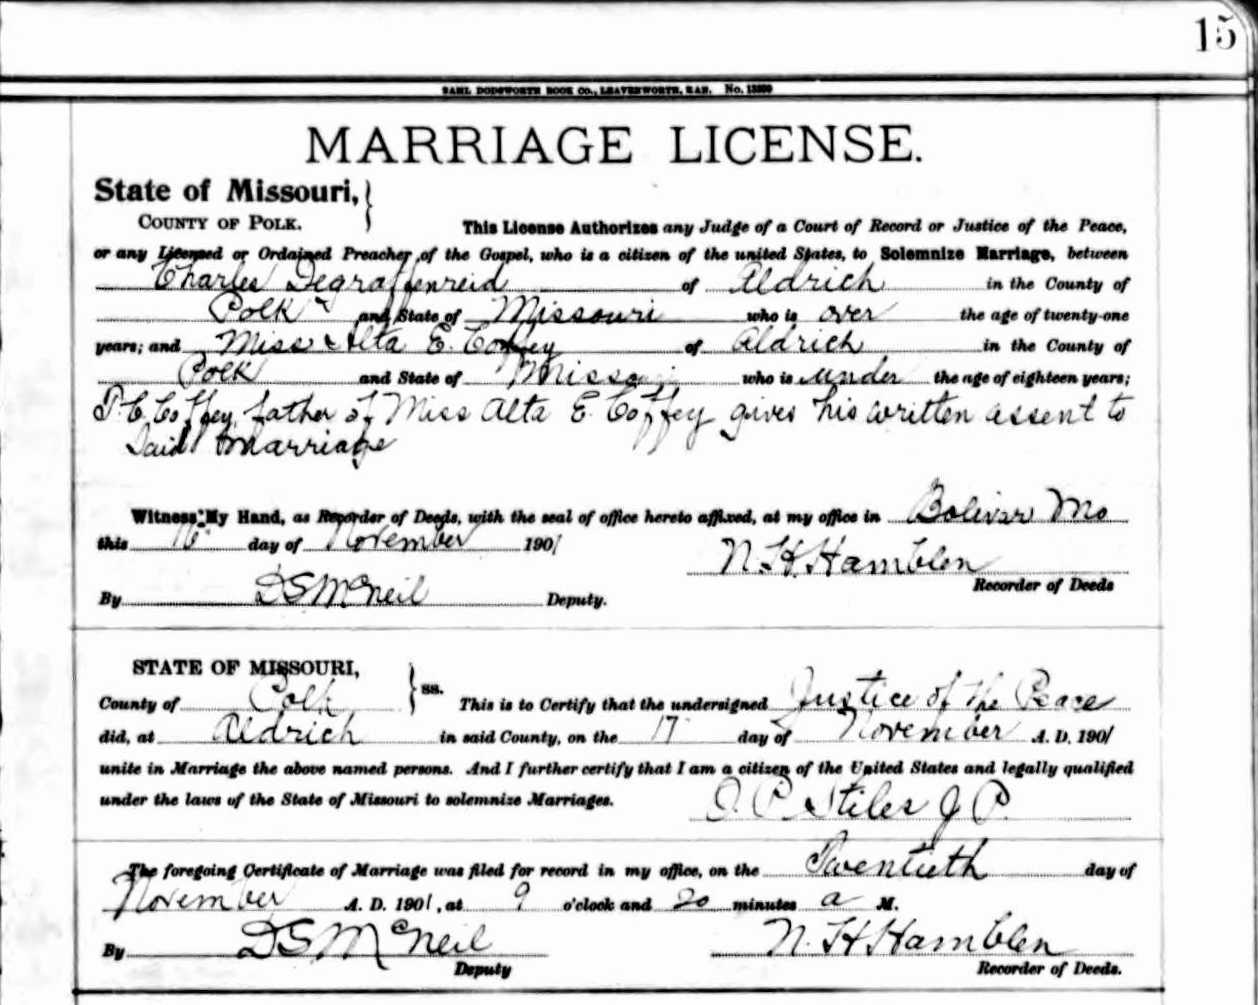 15
SAML DODSWORTH BOOK CO., LEAVENWORTH, KAN. No. 13500
MARRIAGE LICENSE.
State of Missouri,
COUNTY OF POLK.
This License Authorizes any Judge of a Court of Record or Justice of the Peace,
or any Licensed or Ordained Preacher of the Gospel, who is a citizen of the united States, to Solemnize Marriage, between
Charles Degraffenreid of Aldrich in the County of
Polk and State of Missouri who is over the age of twenty-one
years; and Miss Alta E. Coffey of Aldrich in the County of
Polk and State of Missouri who is under the age of eighteen years;
Coffey father of Miss Alta E. Coffey gives his written assent to
Said marriage
Witness My Hand, as Recorder of Deeds, with the seal of office hereto affixed, at my office in Bolivar Mo
this 16 day of November 1901
N. H. Hamblen
Recorder of Deeds
By D S McNeil Deputy.
STATE OF MISSOURI,
County of Polk ss. This is to Certify that the undersigned Justice of the Peace
did, at Aldrich in said County, on the 17 day of November A. D. 1901
unite in Marriage the above named persons. And I further certify that I am a citizen of the United States and legally qualified
under the laws of the State of Missouri to solemnize Marriages. P. Stiles J P.
The foregoing Certificate of Marriage was filed for record in my office, on the Twentieth day of
November A. D. 1901, at 9 o'clock and 20 minutes a M.
By D S McNeil N. H. Hamblen
Deputy Recorder of Deeds.